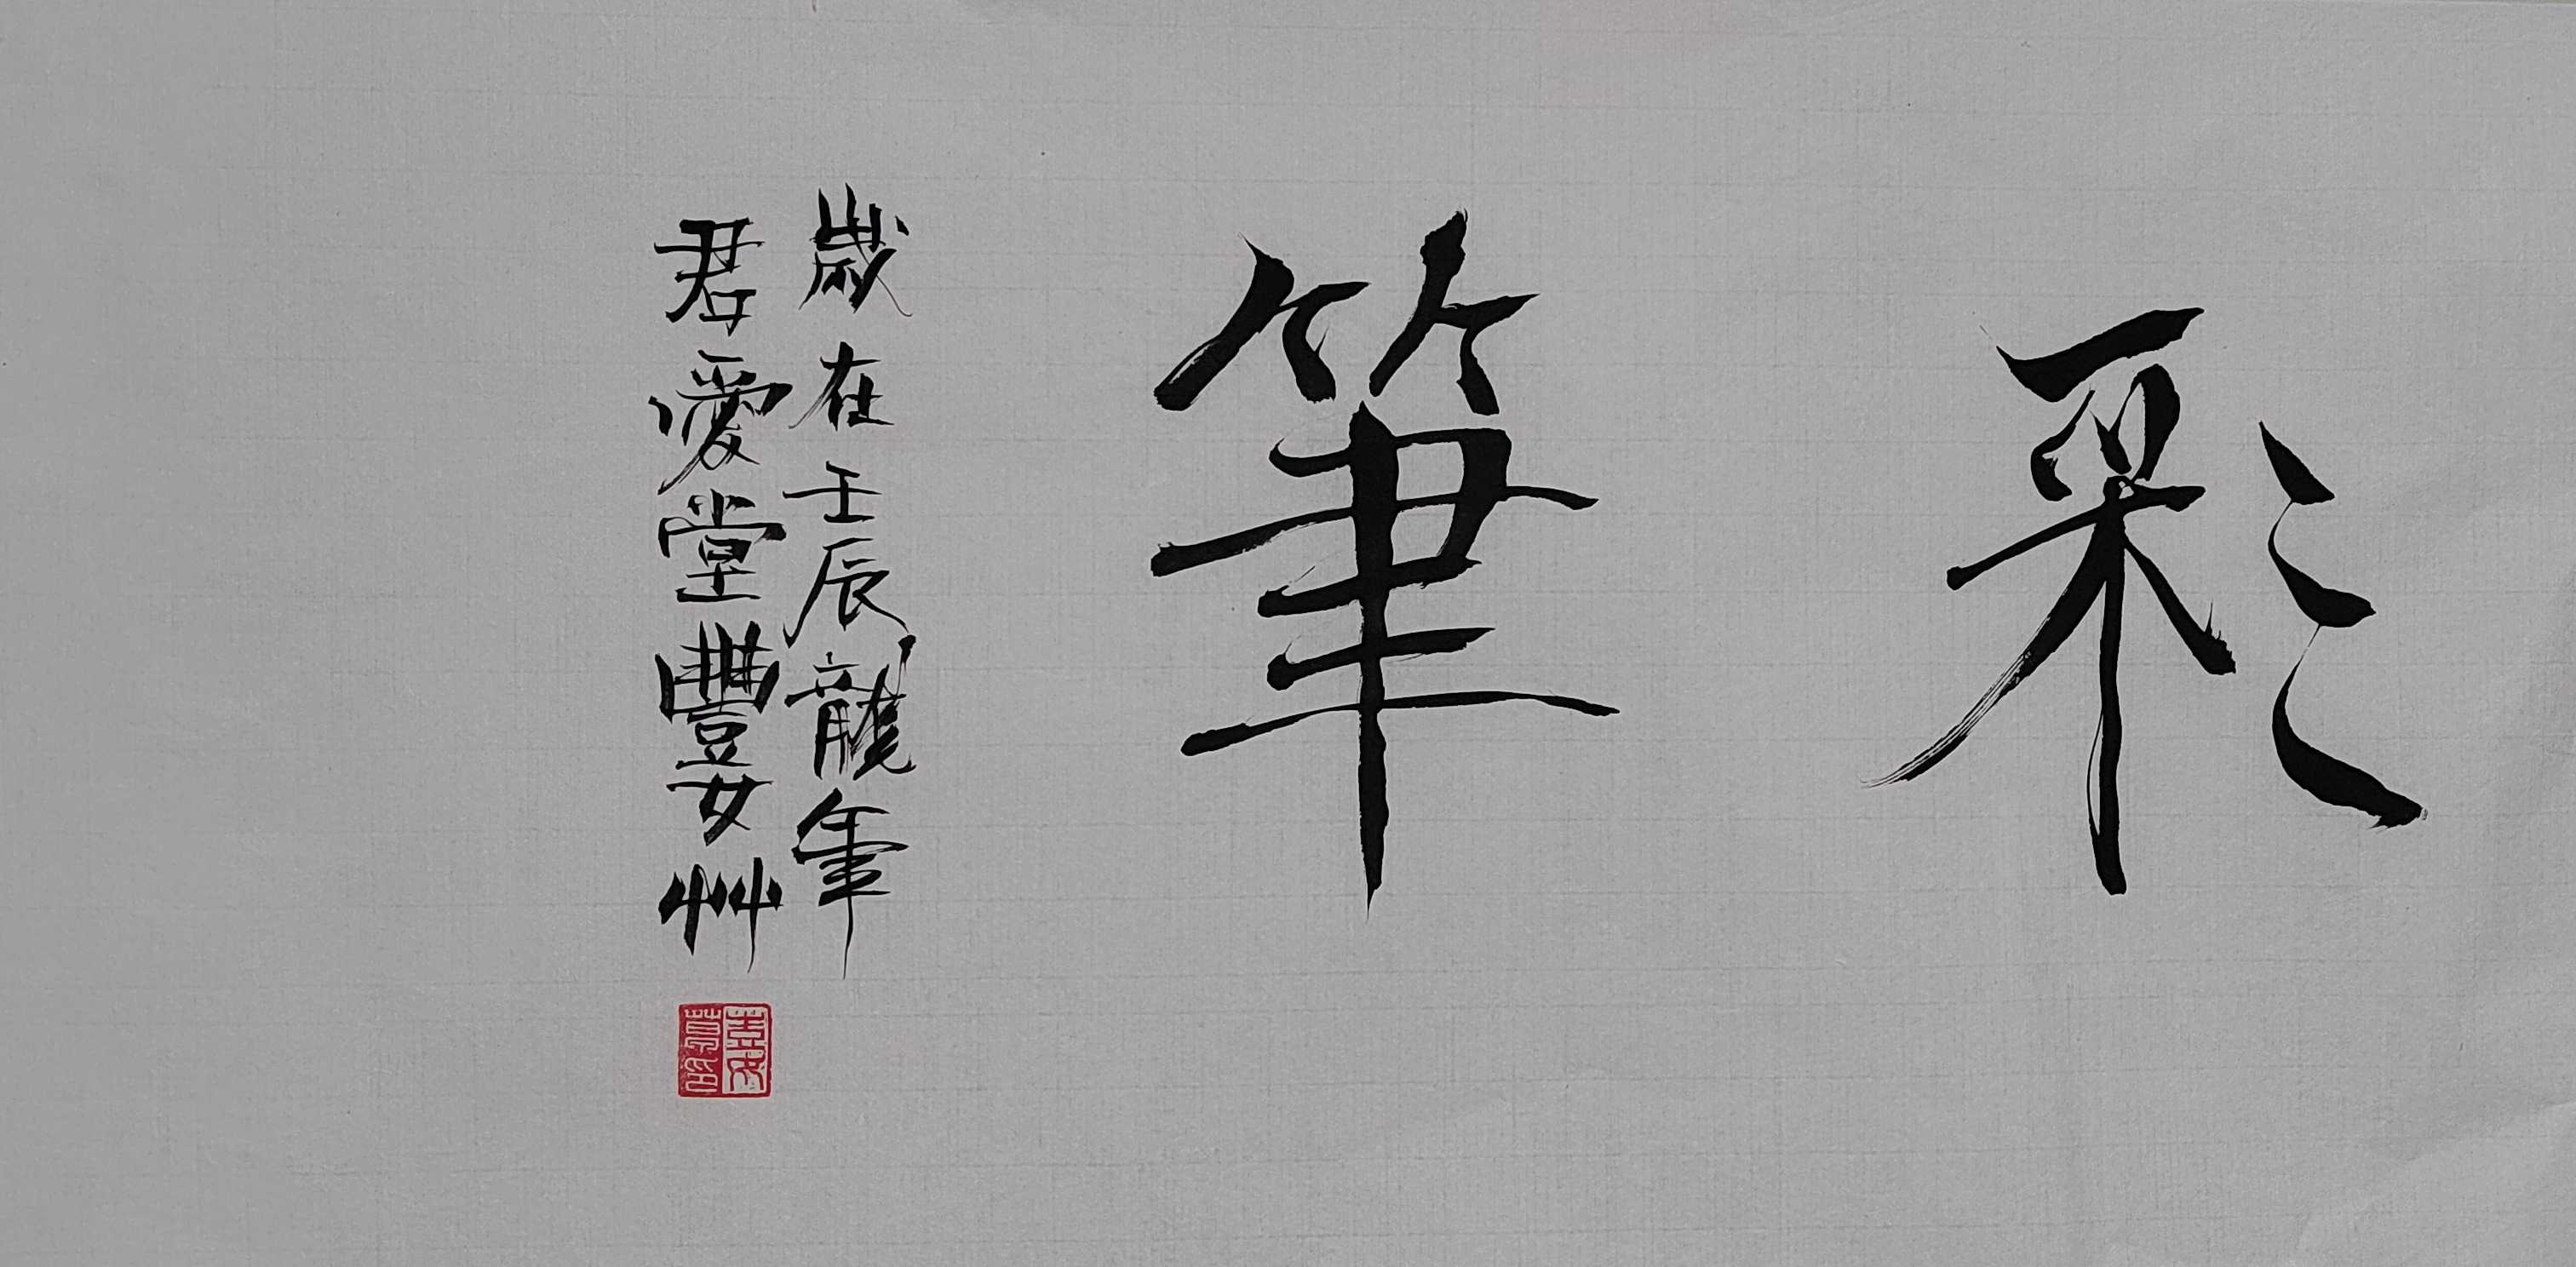 彩筆
歲在壬辰龍年
君愛堂豐女艸